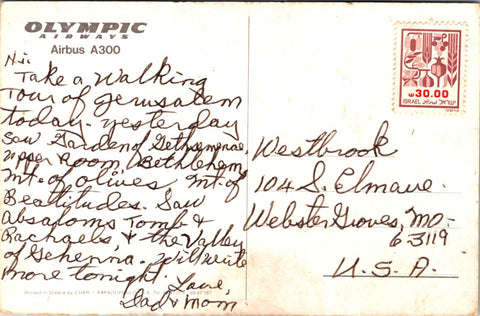 OLYMPIC
AIRWAYS
Airbus A300
Hi:
Take a walking
Tour of Jerusalem
today. yesterday
Saw Garden of Gethsemenae,
upper Room, Bethlehem,
Mt. of olives, Mt. of
Beattitudes. Saw
Absaloms Tomb &
Rachaels, & the Valley
of Gehenna. Will write
more tonight. Love,
Dad & Mom
Printed in Greece by
30.00
ISRAEL اسرائيل ישראל
Westbrook
104 S. Elmave.
Webster Groves, MO-
63119
U.S.A.